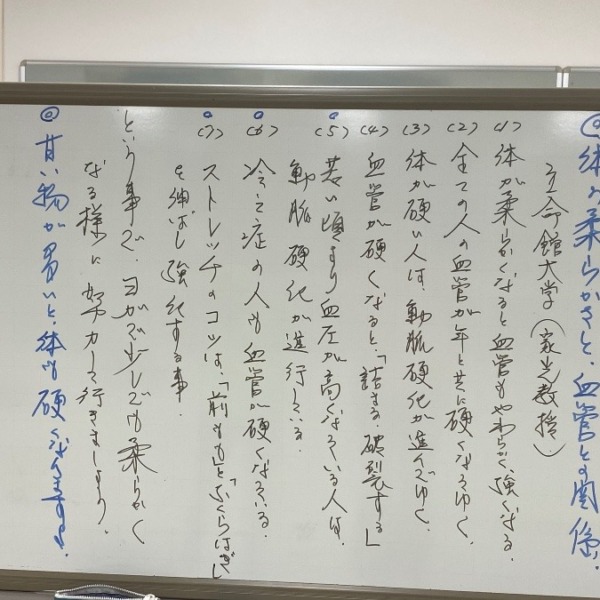 ◎体の柔らかさと、血管との関係、
立命館大学(家光教授)
(1)体が柔らかくなると血管もやわらかく、強くなる。
(2)全ての人の血管が年と共に硬くなってゆく。
(3)体が硬い人は、動脈硬化が進んでゆく。
(4)血管が硬くなると、「詰まる、破裂する」
(5)若い頃より血圧が高くなっている人は、
動脈硬化が進行している。
(6)冷え症の人も血管が硬くなっている。
(7)ストレッチのコツは、「前もも」と「ふくらはぎ」
を伸ばし強化する事。
という事で、ヨガで少しでも柔らかく
なる様に努力して行きましょう。
◎甘い物が多いと、体も硬くなりますよ。